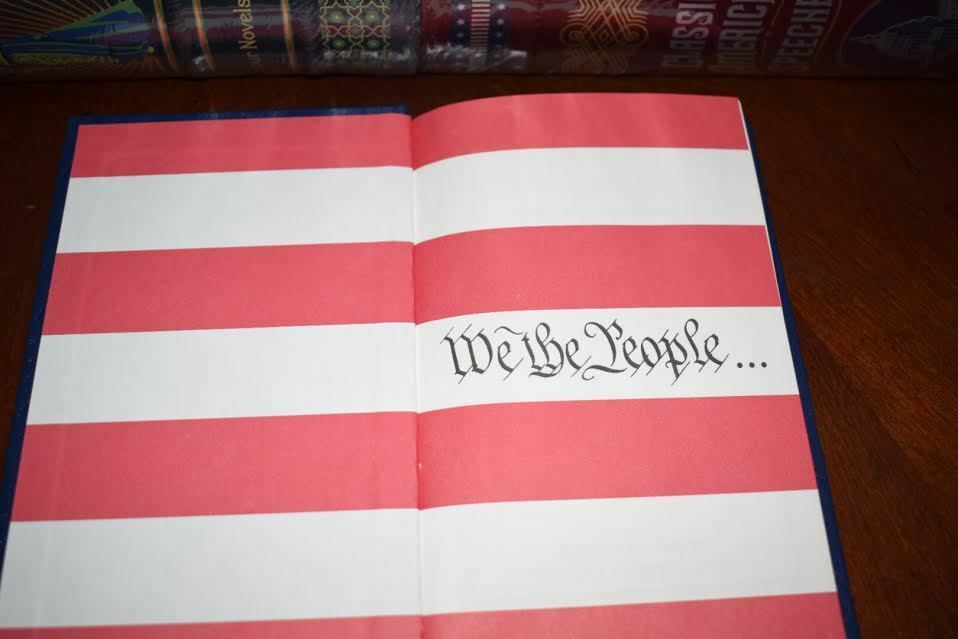 ur Novels
CLASSIC
AMERICAN
SPEECHES
We the People...